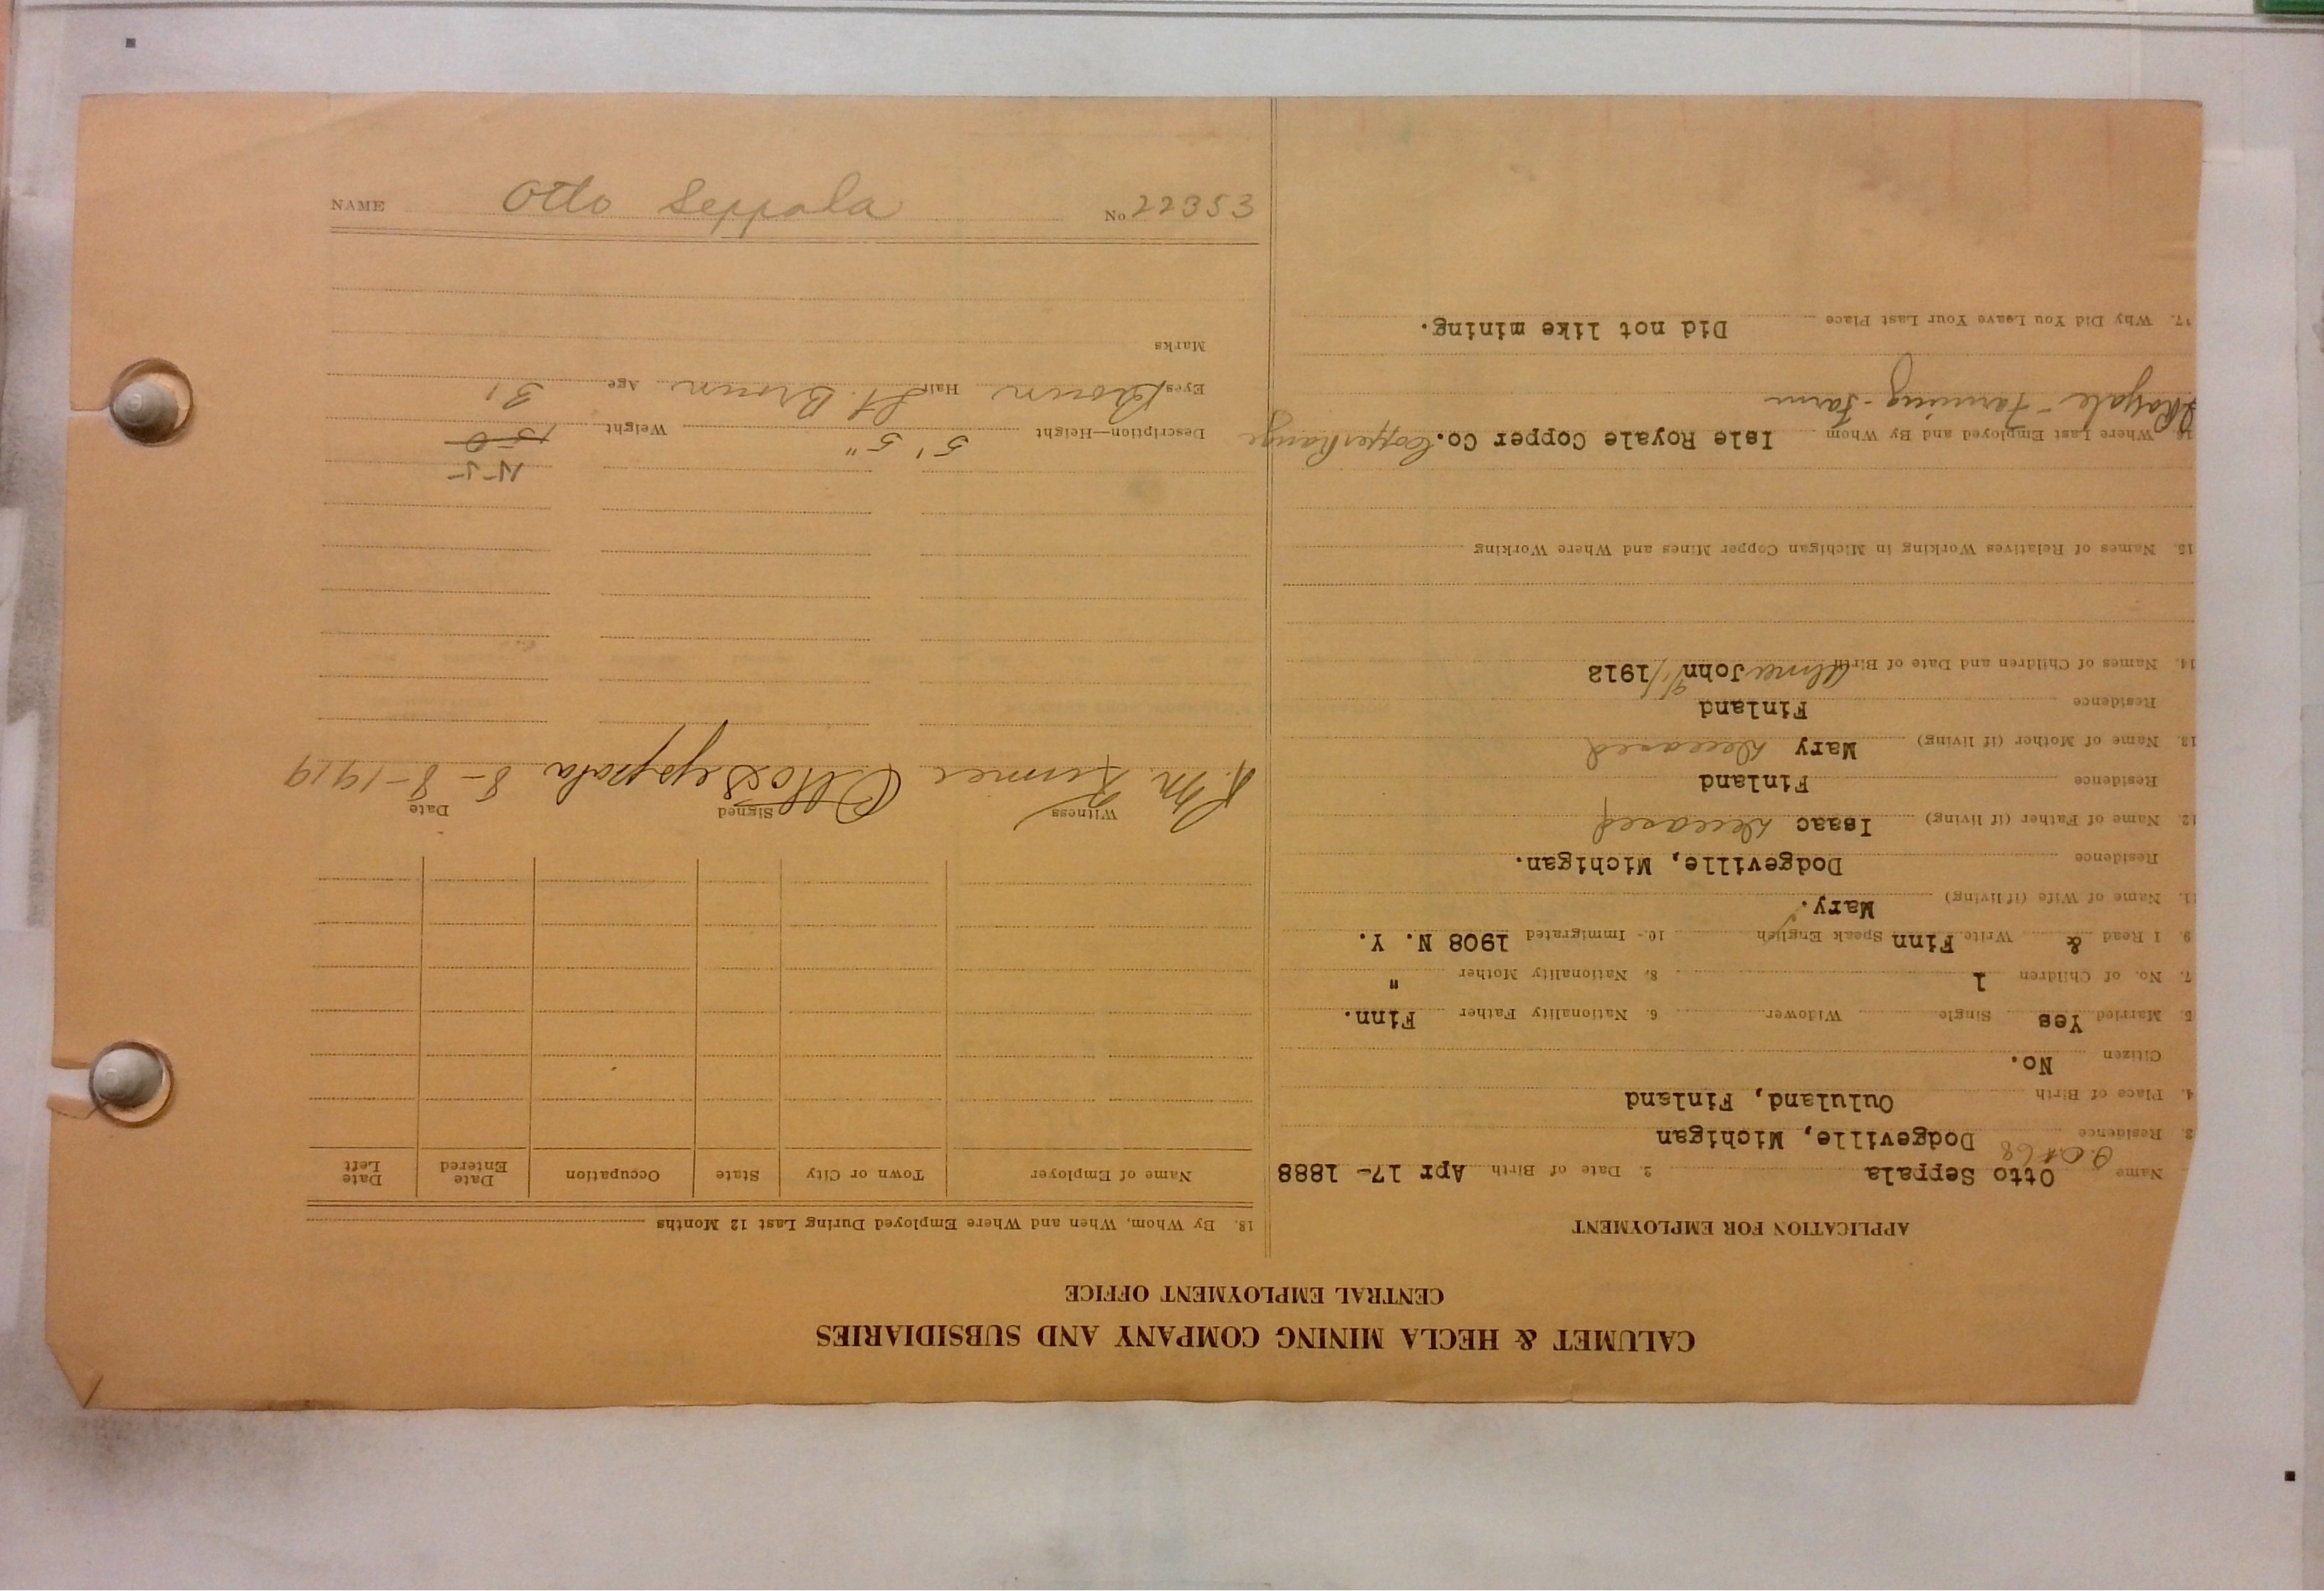 CALUMET & HECLA MINING COMPANY AND SUBSIDIARIES
CENTRAL EMPLOYMENT OFFICE
APPLICATION FOR EMPLOYMENT
Name Otto Seppala 2. Date of Birth Apr 17- 1888
3. Residence Dodgeville, Michigan
4. Place of Birth Oululand, Finland
Citizen No.
5. Married Yes Single Widower 6. Nationality Father Finn.
7. No. of Children 1 8. Nationality Mother "
9. I Read & Write Finn Speak English 10.- Immigrated 1908 N. Y.
11. Name of Wife (if living) Mary.
Residence Dodgeville, Michigan.
12. Name of Father (if living) Isaac Deceased
Residence Finland
13. Name of Mother (if living) Mary Deceased
Residence Finland
14. Names of Children and Date of Birth John 1912
15. Names of Relatives Working in Michigan Copper Mines and Where Working
16. Where Last Employed and By Whom Isle Royale Copper Co. Copper Range
Royale - Farming - Farm
17. Why Did You Leave Your Last Place Did not like mining.
18. By Whom, When and Where Employed During Last 12 Months
Name of Employer Town or City State Occupation Date Entered Date Left
Witness Signed Date
Otto Seppala 8-8-1919
145
Description—Height 5' 5" Weight 150
Eyes Brown Hair Lt. Brown Age 31
Marks
NAME Otto Seppala No. 22353